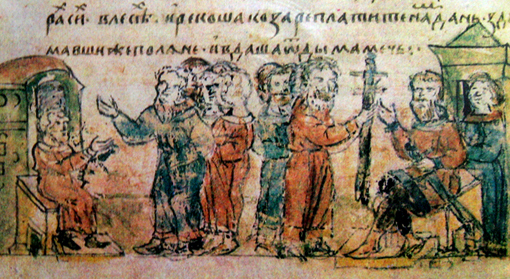 раси · влесѣ · ирекошакозареплатитенадань · зду
мавшижеполяне · ивдашаѿдымамечь ·